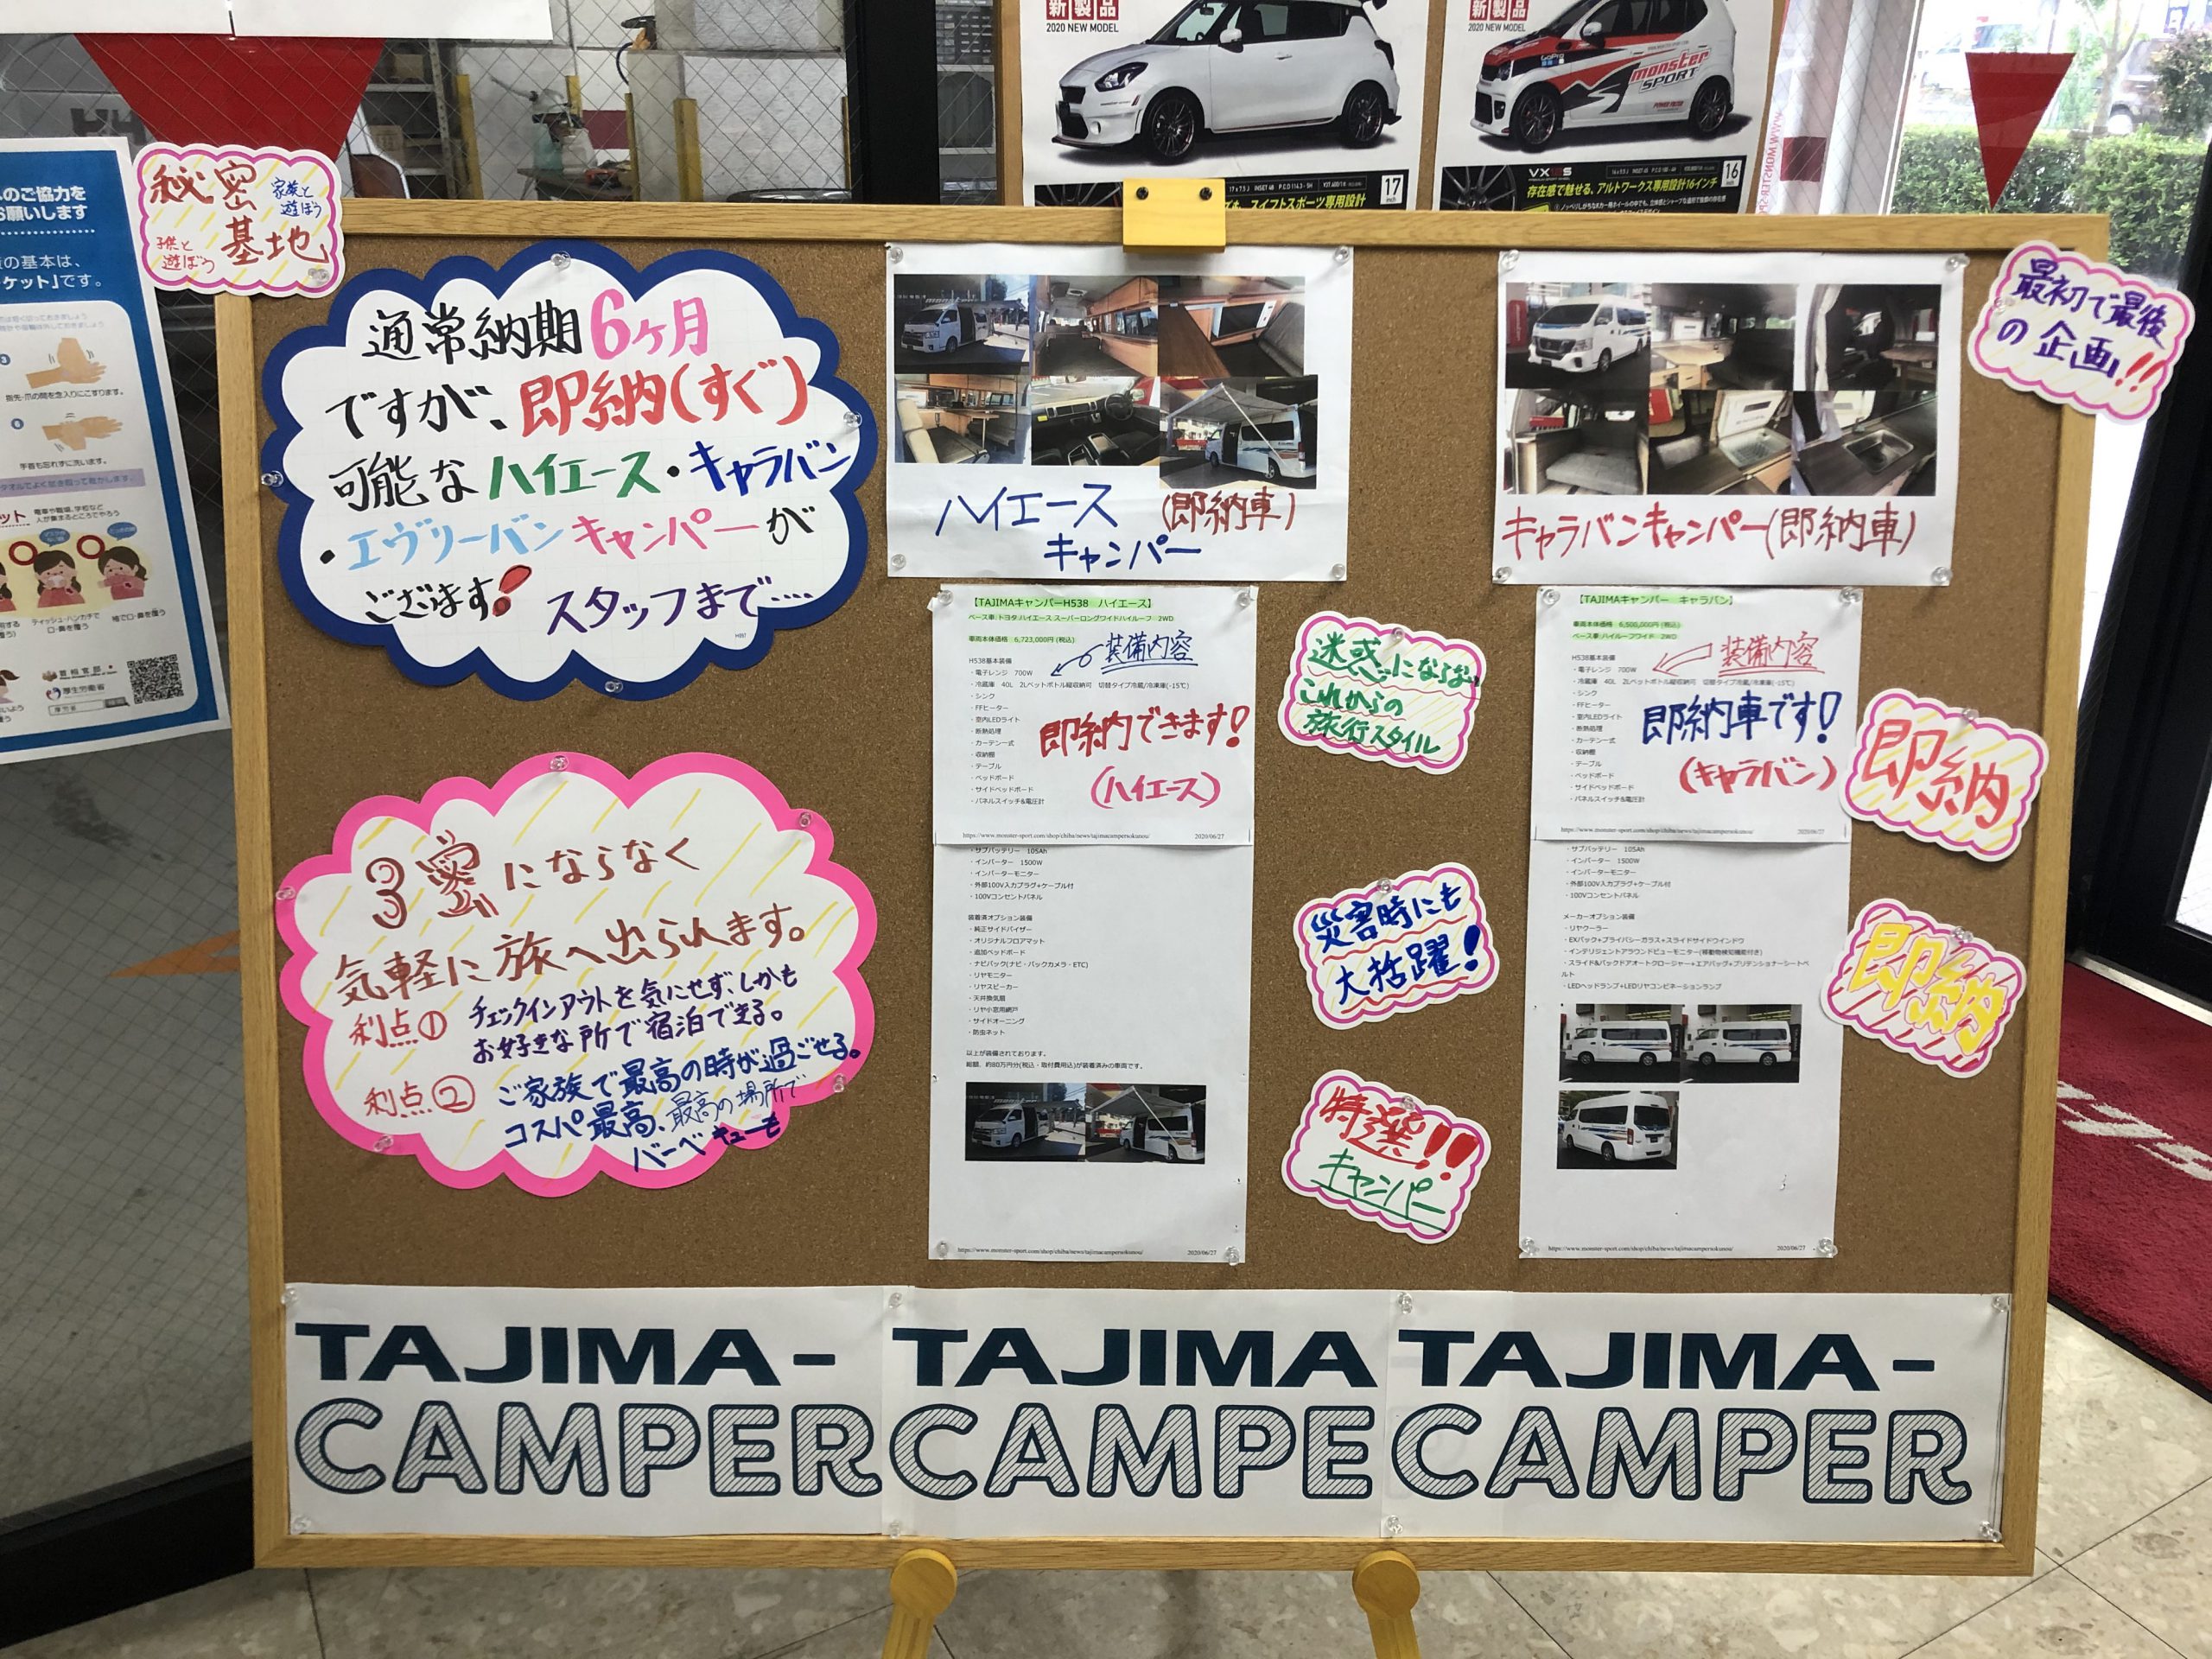 新製品
2020 NEW MODEL
スイフトスポーツ専用設計
17
新製品
2020 NEW MODEL
monster
SPORT
存在感で魅せる、アルトワークス専用設計16インチ
16
のご協力を
お願いします
の基本は、
ケット」です。
指先・爪の間を念入りにこすります。
手首も忘れずに洗います。
首相官邸
厚生労働省
秘密
基地
家族と
遊ぼう
子供と
遊ぼう
通常納期6ヶ月
ですが、即納(すぐ)
可能なハイエース・キャラバン
・エヴリーバンキャンパーが
ございます!スタッフまで‥‥
3密にならなく
気軽に旅へ出られます。
利点① チェックインアウトを気にせず、しかも
お好きな所で宿泊できる。
利点② ご家族で最高の時が過ごせる。
コスパ最高、最高の場所で
バーベキューも
ハイエース (即納車)
キャンパー
【TAJIMAキャンパーH538 ハイエース】
ベース車:トヨタ ハイエース スーパーロングワイドハイルーフ 2WD
車両本体価格 6,723,000円(税込)
装備内容
H538基本装備
・電子レンジ 700W
・冷蔵庫 40L 2Lペットボトル縦収納可 切替タイプ冷蔵/冷凍庫(-15℃)
・シンク
・FFヒーター
・室内LEDライト
・断熱処理
・カーテン一式
・収納棚
・テーブル
・ベッドボード
・サイドベッドボード
・パネルスイッチ&電圧計
即納できます!
(ハイエース)
https://www.monster-sport.com/shop/chiba/news/tajimacampersokunou/ 2020/06/27
・サブバッテリー 105Ah
・インバーター 1500W
・インバーターモニター
・外部100V入力プラグ+ケーブル付
・100Vコンセントパネル
装着済オプション装備
・純正サイドバイザー
・オリジナルフロアマット
・追加ベッドボード
・ナビパック(ナビ・バックカメラ・ETC)
・リヤモニター
・リヤスピーカー
・天井換気扇
・リヤ小窓用網戸
・サイドオーニング
・防虫ネット
以上が装備されております。
総額、約80万円分(税込・取付費用込)が装着済みの車両です。
https://www.monster-sport.com/shop/chiba/news/tajimacampersokunou/ 2020/06/27
迷惑にならない
これからの
旅行スタイル
災害時にも
大活躍!
特選!!
キャンパー
キャラバンキャンパー(即納車)
【TAJIMAキャンパー キャラバン】
車両本体価格 6,500,000円(税込)
ベース車:ハイルーフワイド 2WD
装備内容
H538基本装備
・電子レンジ 700W
・冷蔵庫 40L 2Lペットボトル縦収納可 切替タイプ冷蔵/冷凍庫(-15℃)
・シンク
・FFヒーター
・室内LEDライト
・断熱処理
・カーテン一式
・収納棚
・テーブル
・ベッドボード
・サイドベッドボード
・パネルスイッチ&電圧計
即納車です!
(キャラバン)
https://www.monster-sport.com/shop/chiba/news/tajimacampersokunou/ 2020/06/27
・サブバッテリー 105Ah
・インバーター 1500W
・インバーターモニター
・外部100V入力プラグ+ケーブル付
・100Vコンセントパネル
メーカーオプション装備
・リヤクーラー
・EXパック+プライバシーガラス+スライドサイドウインドウ
・インテリジェントアラウンドビューモニター(移動物検知機能付き)
・スライド&バックドアオートクロージャー+エアバッグ+プリテンショナーシートベルト
・LEDヘッドランプ+LEDリヤコンビネーションランプ
https://www.monster-sport.com/shop/chiba/news/tajimacampersokunou/ 2020/06/27
最初で最後
の企画!!
即納
即納
TAJIMA-
CAMPER
TAJIMA
CAMPE
TAJIMA-
CAMPER